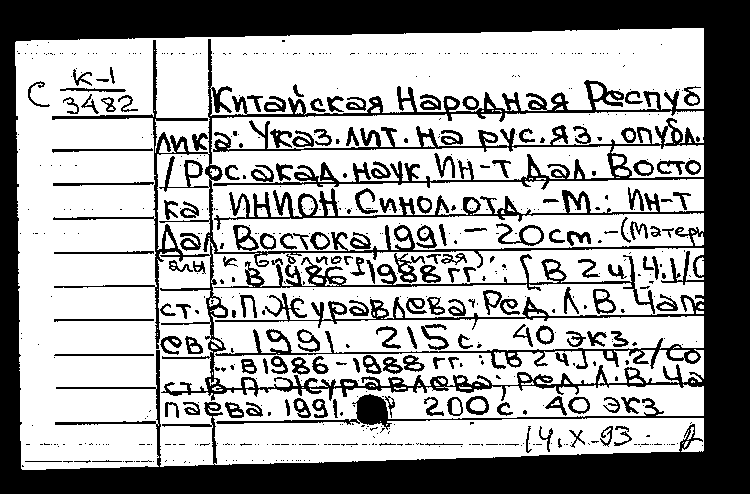 С К-1
3482
Китайская Народная Респуб
лика: Указ. лит. на рус. яз., опубл.
/ Рос. акад. наук, Ин-т Дал. Восто
ка, ИНИОН. Синол. отд. - М.: Ин-т
Дал. Востока, 1991. - 20 см. - (Матери
алы к библиогр. Китая).
... в 1986-1988 гг.: [В 2 ч]. Ч.1/Со
ст. В.П. Журавлева; Ред. Л.В. Чапа
ева. 1991. 215 с. 40 экз.
... в 1986-1988 гг.: [В 2 ч.]. Ч.2/Со
ст. В.П. Журавлева; Ред. Л.В. Ча
паева. 1991. 200 с. 40 экз
14.X-93.